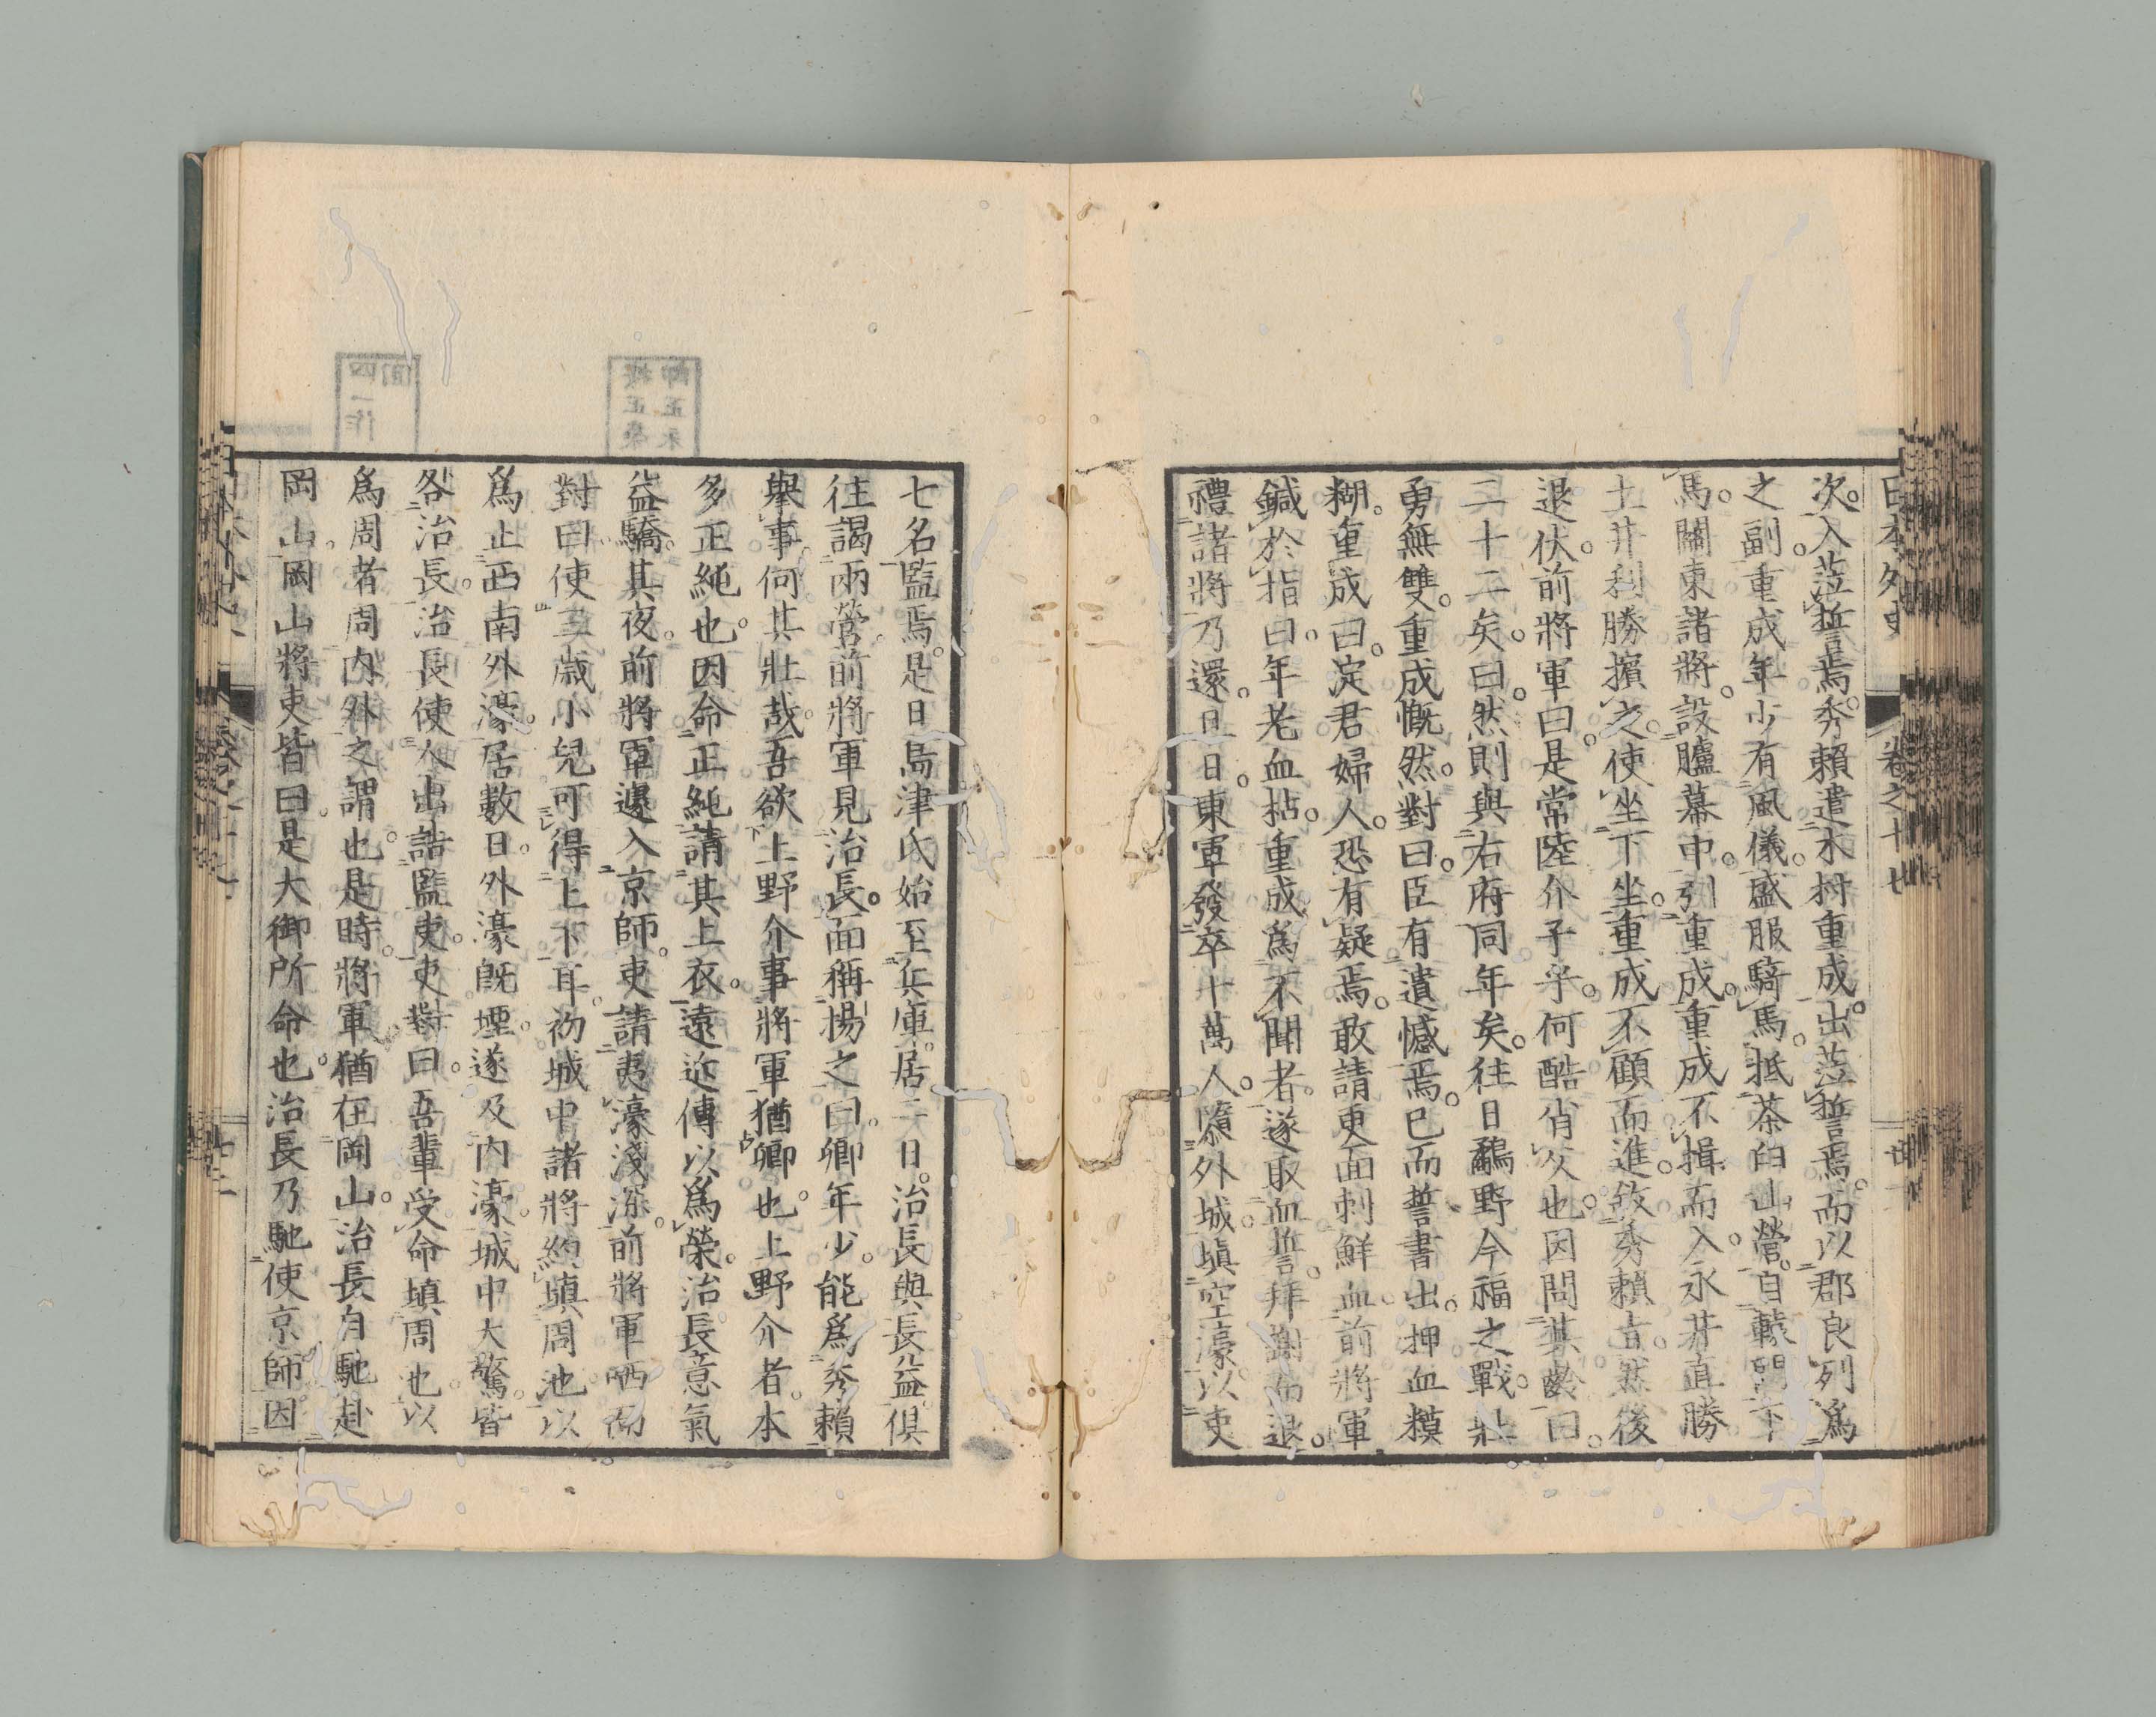 次。入莅誓焉。秀賴遣木村重成。出莅誓焉。而以郡良列爲
之副。重成年少有風儀。盛服騎馬。抵茶臼山營。自轅門下
馬。關東諸將。設臚幕中。引重成。重成不揖而入。永井直勝
土井利勝擯之。使坐下坐。重成不顧而進。致秀賴旨。然後
退伏。前將軍曰。是常陸介子乎。何酷肖父也。因問其齡。曰。
二十二矣。曰。然則與右府同年矣。往日鷸野今福之戰。壯
勇無雙。重成慨然。對曰。臣有遺憾焉。已而誓書出。押血糢
糊。重成曰。淀君婦人。恐有疑焉。敢請更面刺鮮血。前將軍
鍼於指。曰。年老血拈。重成爲不聞者。遂取血誓。拜謝而退。
禮諸將乃還。旦日。東軍發卒十萬人。隳外城。塡空濠。以吏
七名監焉。是日島津氏始至兵庫。居二日。治長與長益。俱
往謁兩營。前將軍見治長。面稱揚之曰。卿年少。能爲秀賴
舉事。何其壯哉。吾欲上野介事將軍猶卿也。上野介者。本
多正純也。因命正純請其上衣。遠近傳以爲榮。治長意氣
益驕。其夜。前將軍還入京師。吏請夷濠淺深。前將軍哂而
對曰。使三歲小兒可得上下耳。初城中諸將約塡周池。以
爲止西南外濠。居數日。外濠既堙。遂及內濠。城中大驚。皆
咎治長。治長使人出詰監吏。吏對曰。吾輩受命塡周也。以
爲周者周內外之謂也。是時。將軍猶在岡山。治長自馳赴
岡山。岡山將吏皆曰。是大御所命也。治長乃馳使京師。因
日本外史
卷之十七